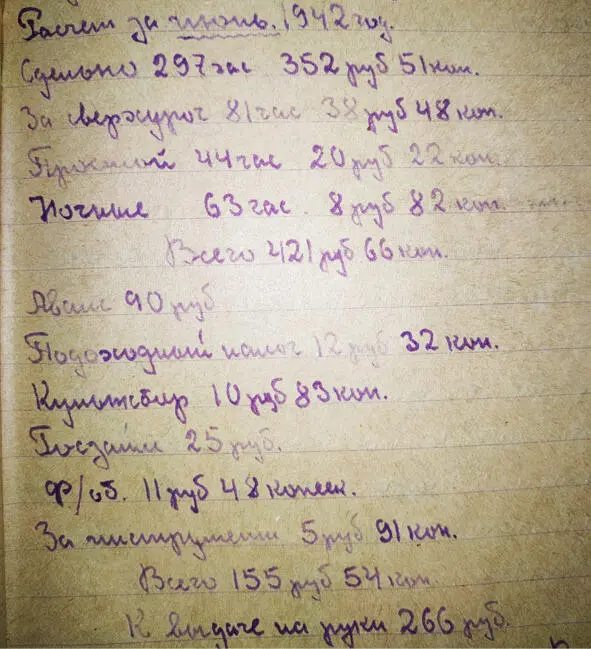 Расчет за июнь. 1942 год.
Сдельно 297 час 352 руб 51 коп.
За сверхуроч 81 час 38 руб 48 коп.
Простой 44 час 20 руб 22 коп.
Ночные 63 час 8 руб 82 коп.
Всего 421 руб 66 коп.
Аванс 90 руб
Подоходный налог 12 руб 32 коп.
Культсбор 10 руб 83 коп.
Госзайм 25 руб.
Ф/об. 11 руб 48 копеек.
За инструмент 5 руб 91 коп.
Всего 155 руб 54 коп.
К выдаче на руки 266 руб.